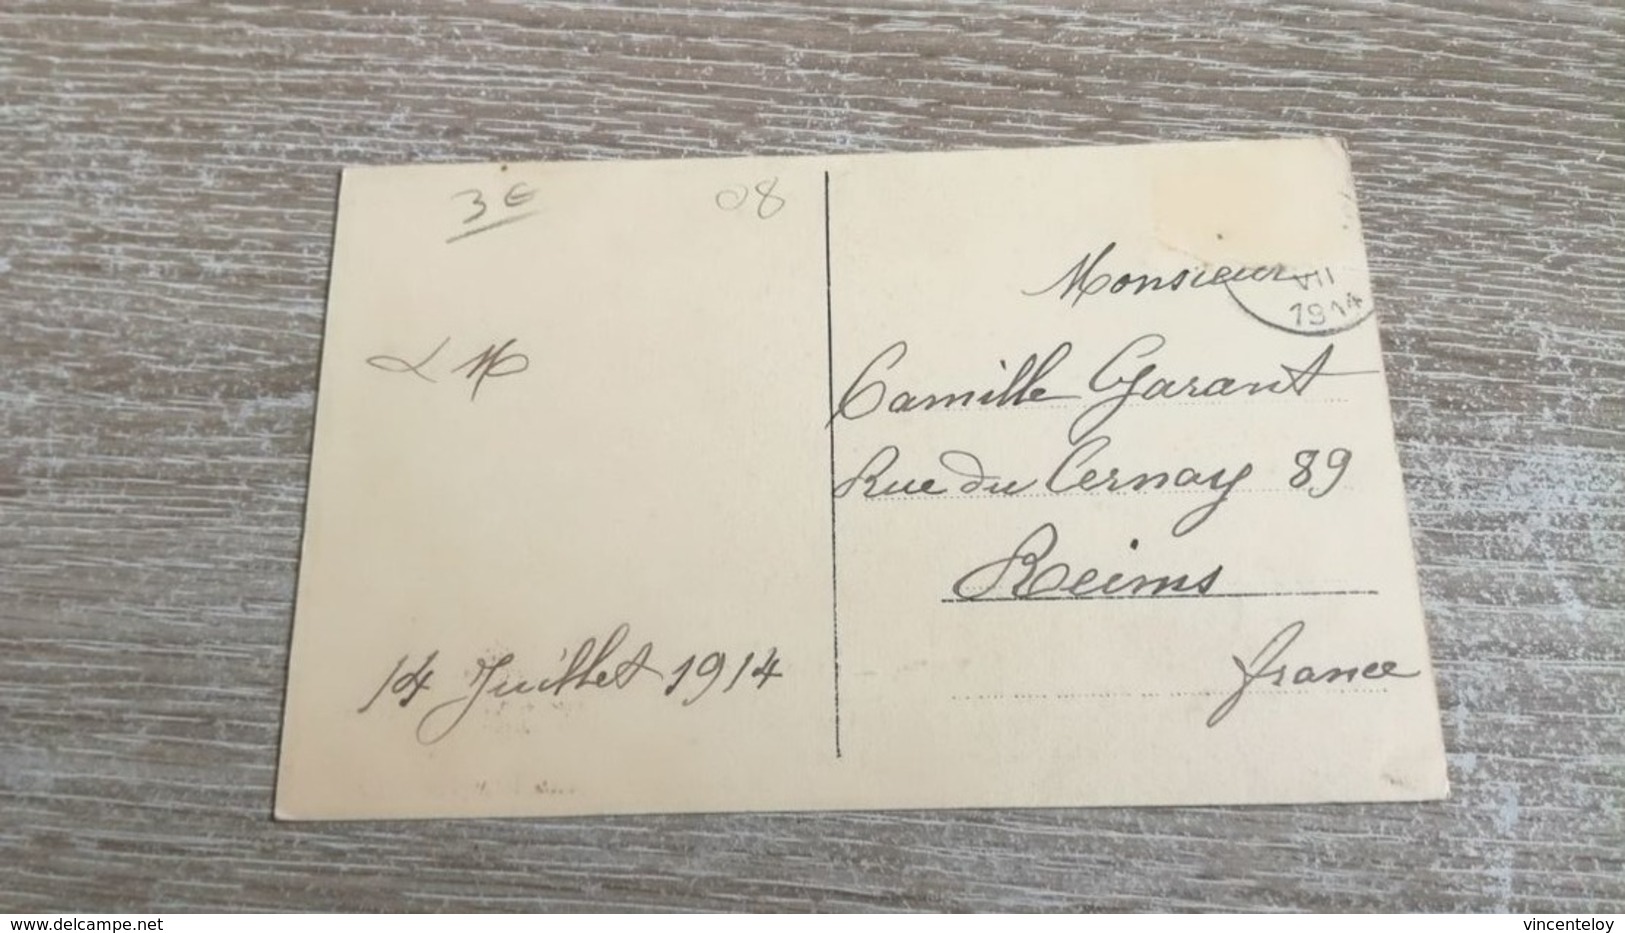 3€
08
L M
14 Juillet 1914
Monsieur
VII
1914
Camille Garant
Rue du Cernay 89
Reims
france
www.delcampe.net
vincenteloy